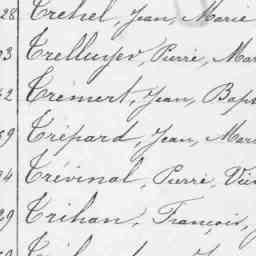 28 Tréhel, Jean, Marie
Trelluyer, Pierre, Mar
Trémert, Jean, Bap
Trépard, Jean, Mari
Trévinal, Pierre, Vin
29 Trihan, François,